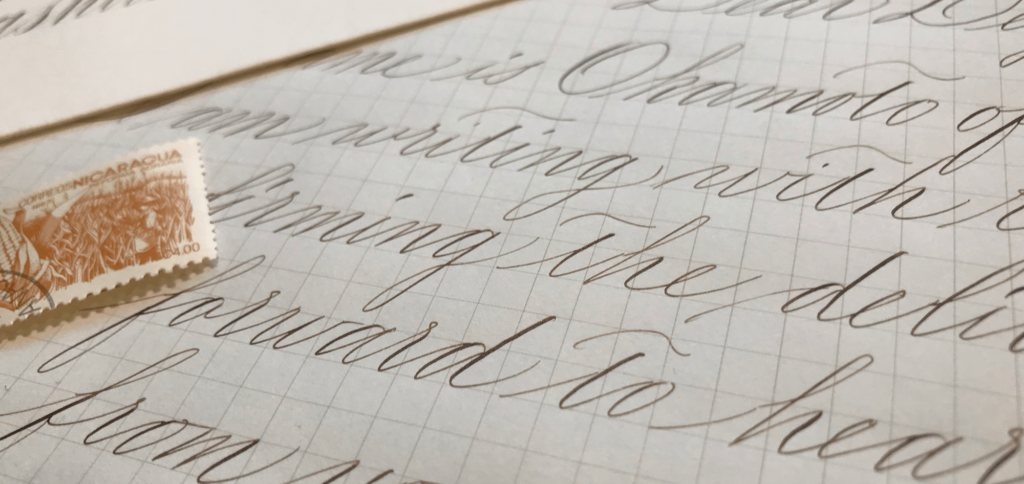 Dear
me is Okamoto of
am writing, with
firming the, deli
forward to hear
from
CORREOS NICARAGUA
1.00